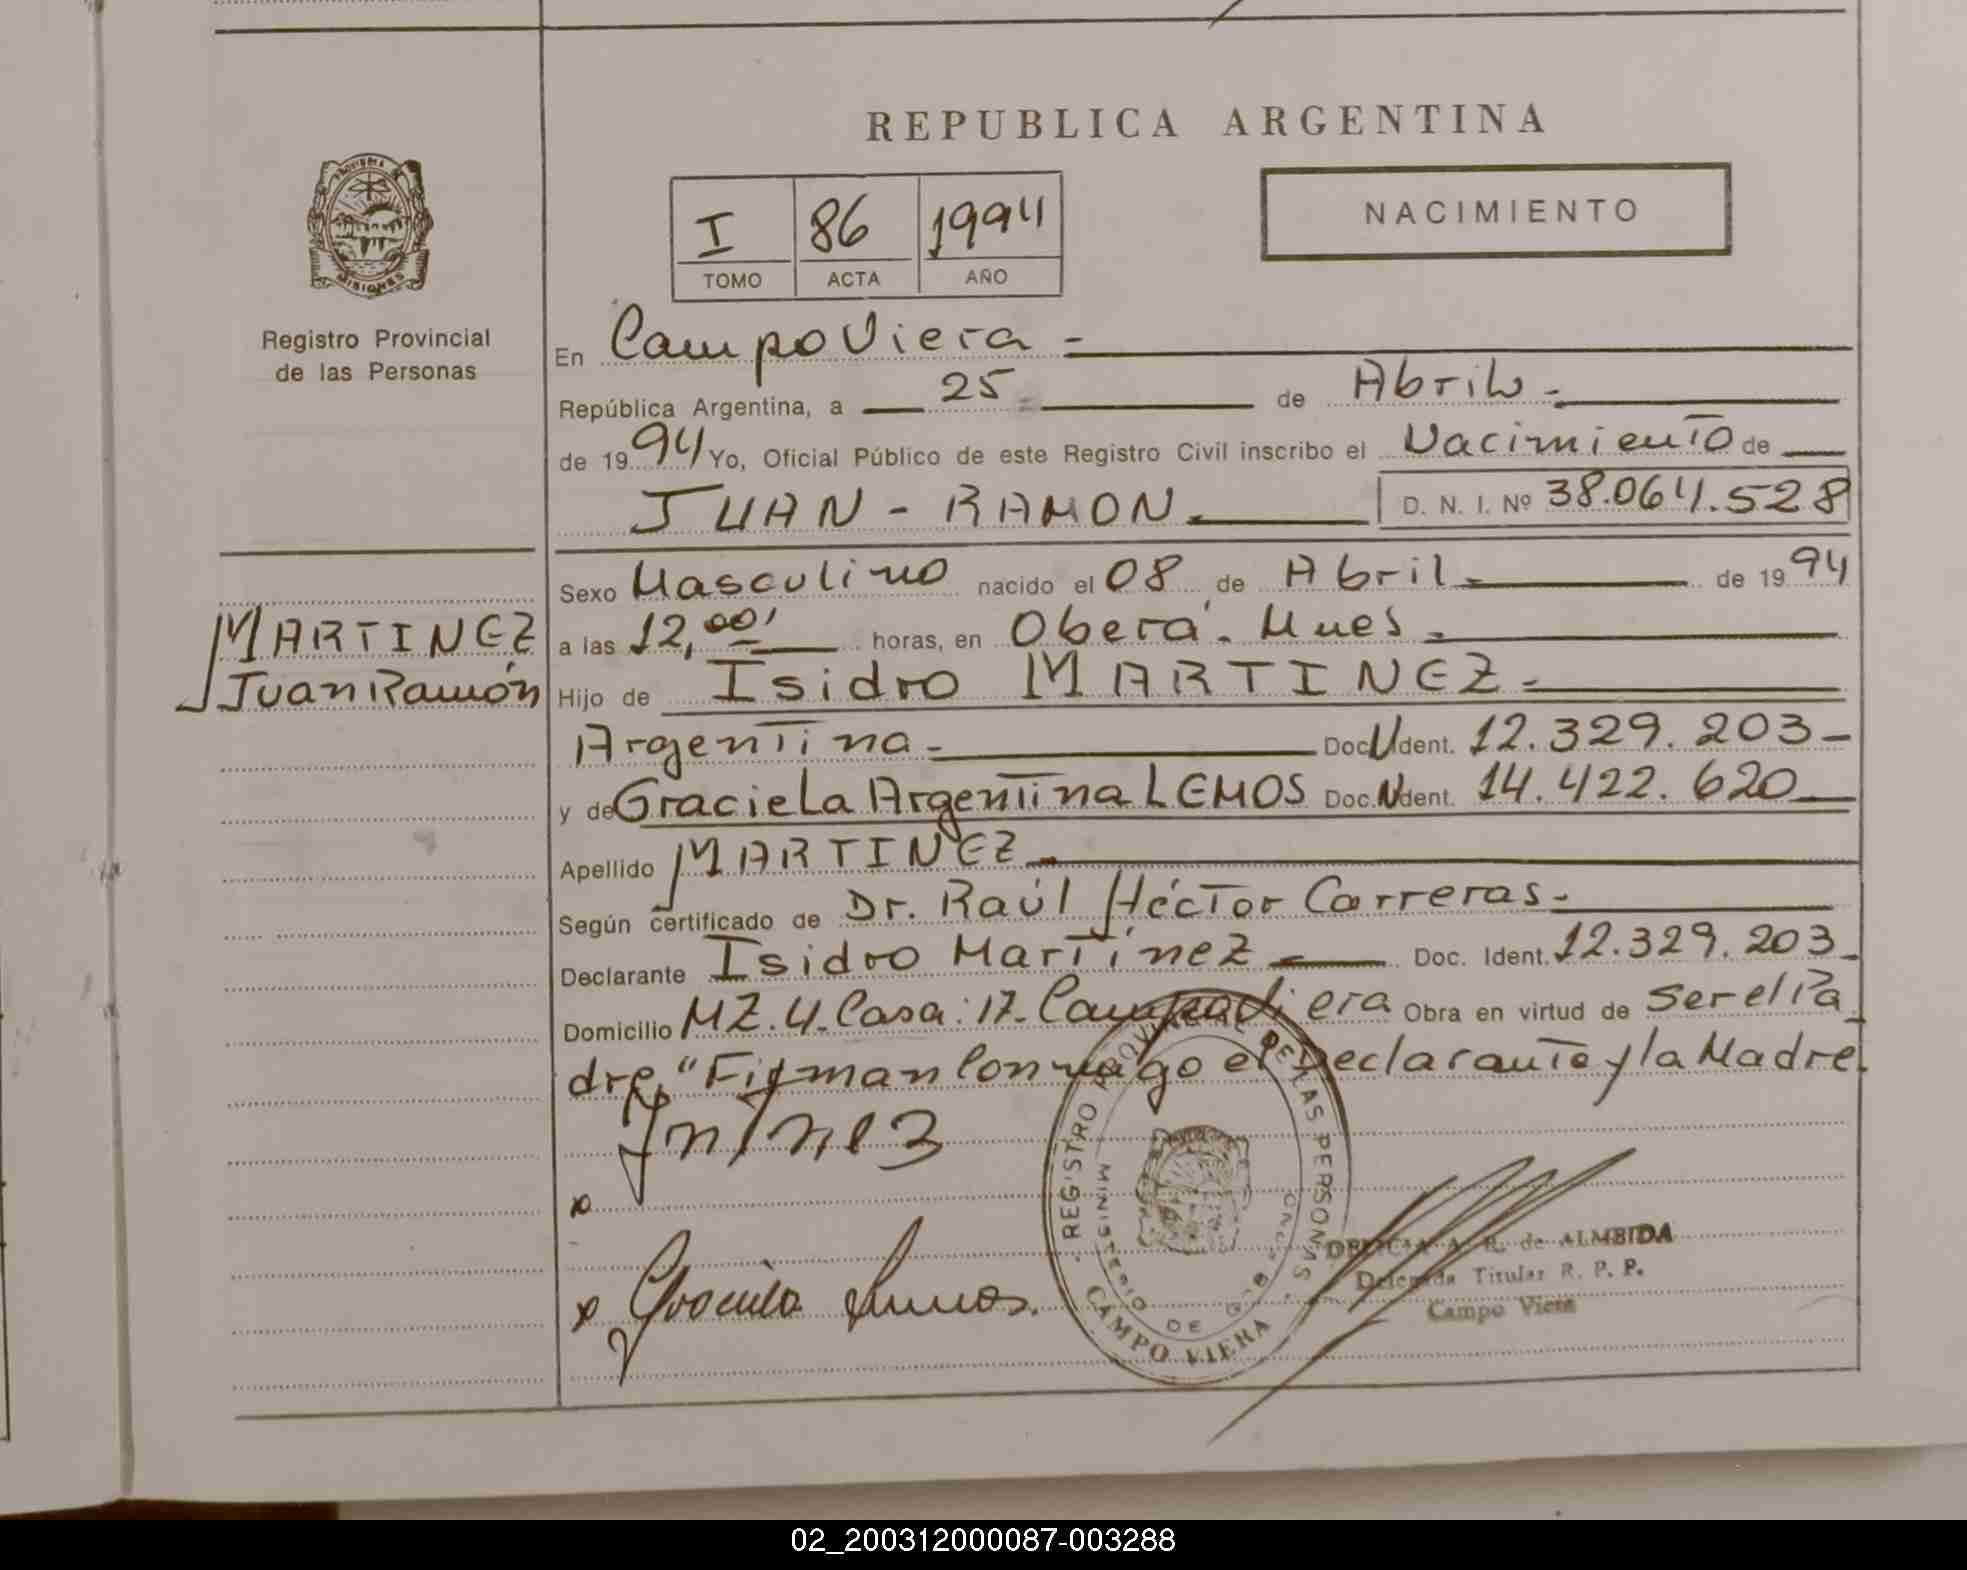 REPUBLICA ARGENTINA
PROVINCIA
MISIONES
Registro Provincial
de las Personas
NACIMIENTO
I 86 1994
TOMO ACTA AÑO
En Campo Viera -
República Argentina, a 25 de Abril -
de 1994 Yo, Oficial Público de este Registro Civil inscribo el Nacimiento de
JUAN - RAMON D. N. I. Nº 38.064.528
Sexo Masculino nacido el 08 de Abril de 1994
a las 12,00' horas, en Oberá. Mnes -
Hijo de Isidro MARTINEZ -
Argentina - Doc. N Ident. 12.329.203 -
y de Graciela Argentina LEMOS Doc. N Ident. 14.422.620
Apellido MARTINEZ -
Según certificado de Dr. Raúl Héctor Carreras -
Declarante Isidro Martínez Doc. Ident. 12.329.203 -
Domicilio MZ. 4 - Casa: 17 - Campo Viera Obra en virtud de ser el Pa
dre, "Firman conmigo el Declarante y la Madre.
MARTINEZ
Juan Ramón
x
x Graciela Lemos.
REGISTRO PROVINCIAL DE LAS PERSONAS
MINISTERIO DE GOB
CAMPO VIERA
DELICIA A. R. de ALMEIDA
Delegada Titular R. P. P.
Campo Viera
02_200312000087-003288